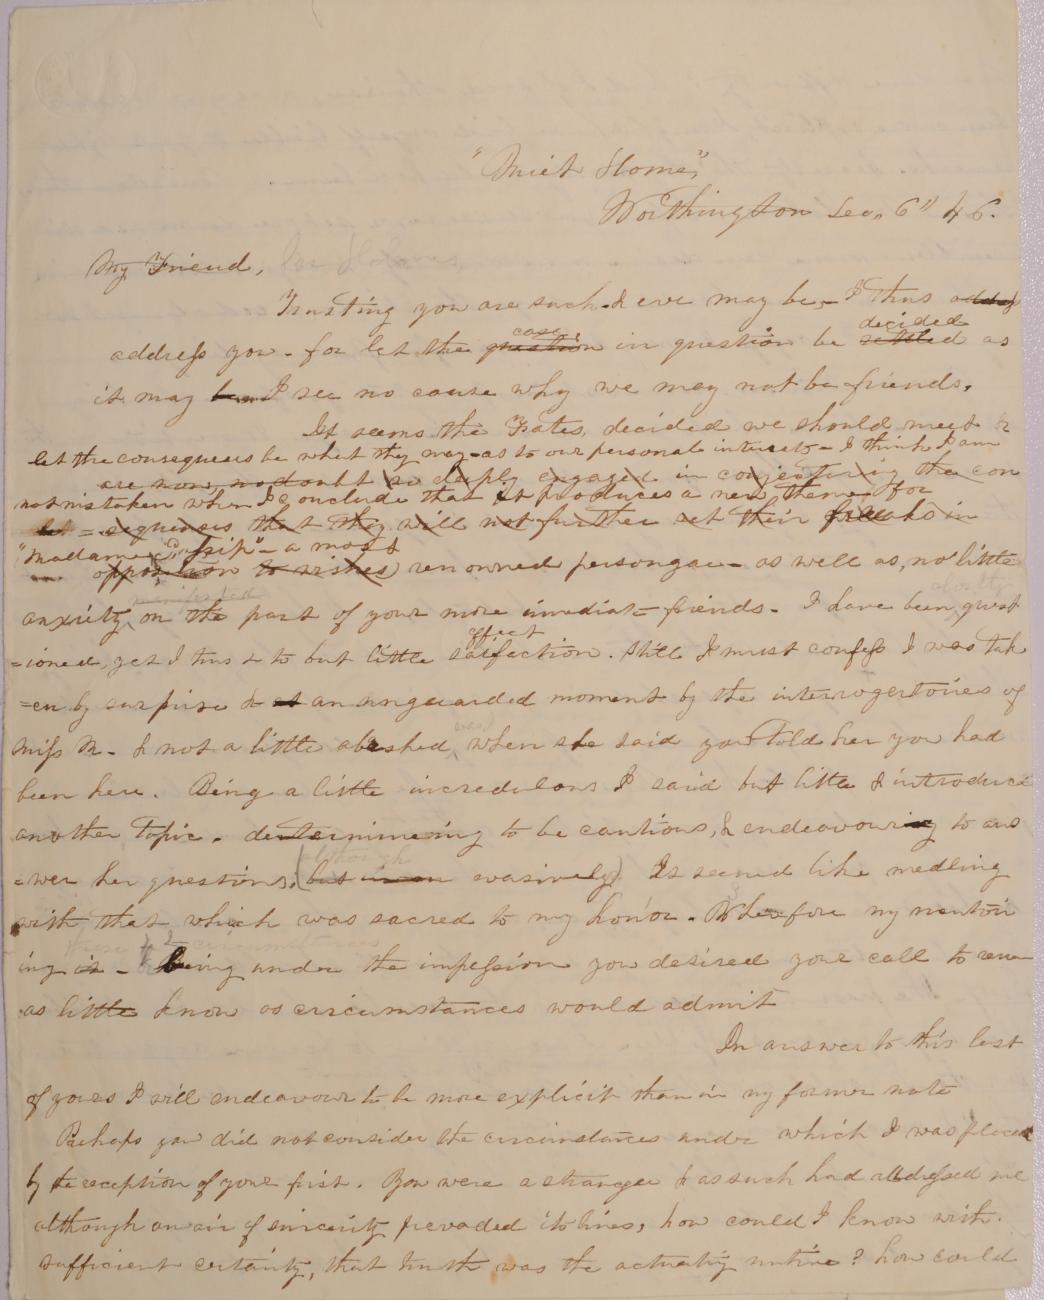 "Quiet Home",
Worthington Dec. 6" 46.
My Friend,
Trusting you are such & ever may be, - I thus addres
address you - for let the question case, in question be settled decided as
it may be I see no cause why we may not be friends.
It seems the Fates, decided we should meet &
let the consequences be what they may - as to our personal interests - I think I am
are now, no doubt so deeply engaged in conjecturing the con
not mistaken when I conclude that it produces a new theme for
= sequenses that they will not further set their freaks in
"Madame Gossip" - a most
opposition to wishes renowned personage - as well as, no little
manifested
anxiety on the part of your more imediate friends - I have been quest
=ioned, yet I trust to but little effect saisfaction. Still I must confess I was tak
=en by surprise & at an unguarded moment by the interrogertoires of
Miss M. & not a little abashed was I when she said you told her you had
been here. Being a little incredulous I said but little & introduced
another topic. determineing to be cautious, & endeavouring to ans
=wer her questions, (but although evasively) It seemed like medling
with that which was sacred to my honor. Wherefore my mention
these circumstances
ing it - Being under the impession you desired your call to
as little know as circumstances would admit
In answer to this last
of yours I will endeavour to be more explicit than in my former note
Perhaps you did not consider the circumstances under which I was placed
by the reception of your first. You were a stranger & as such had addressed me
although an air of sincerity pevaded its lines, how could I know with
sufficient certainty, that truth was the actuating motive? how could